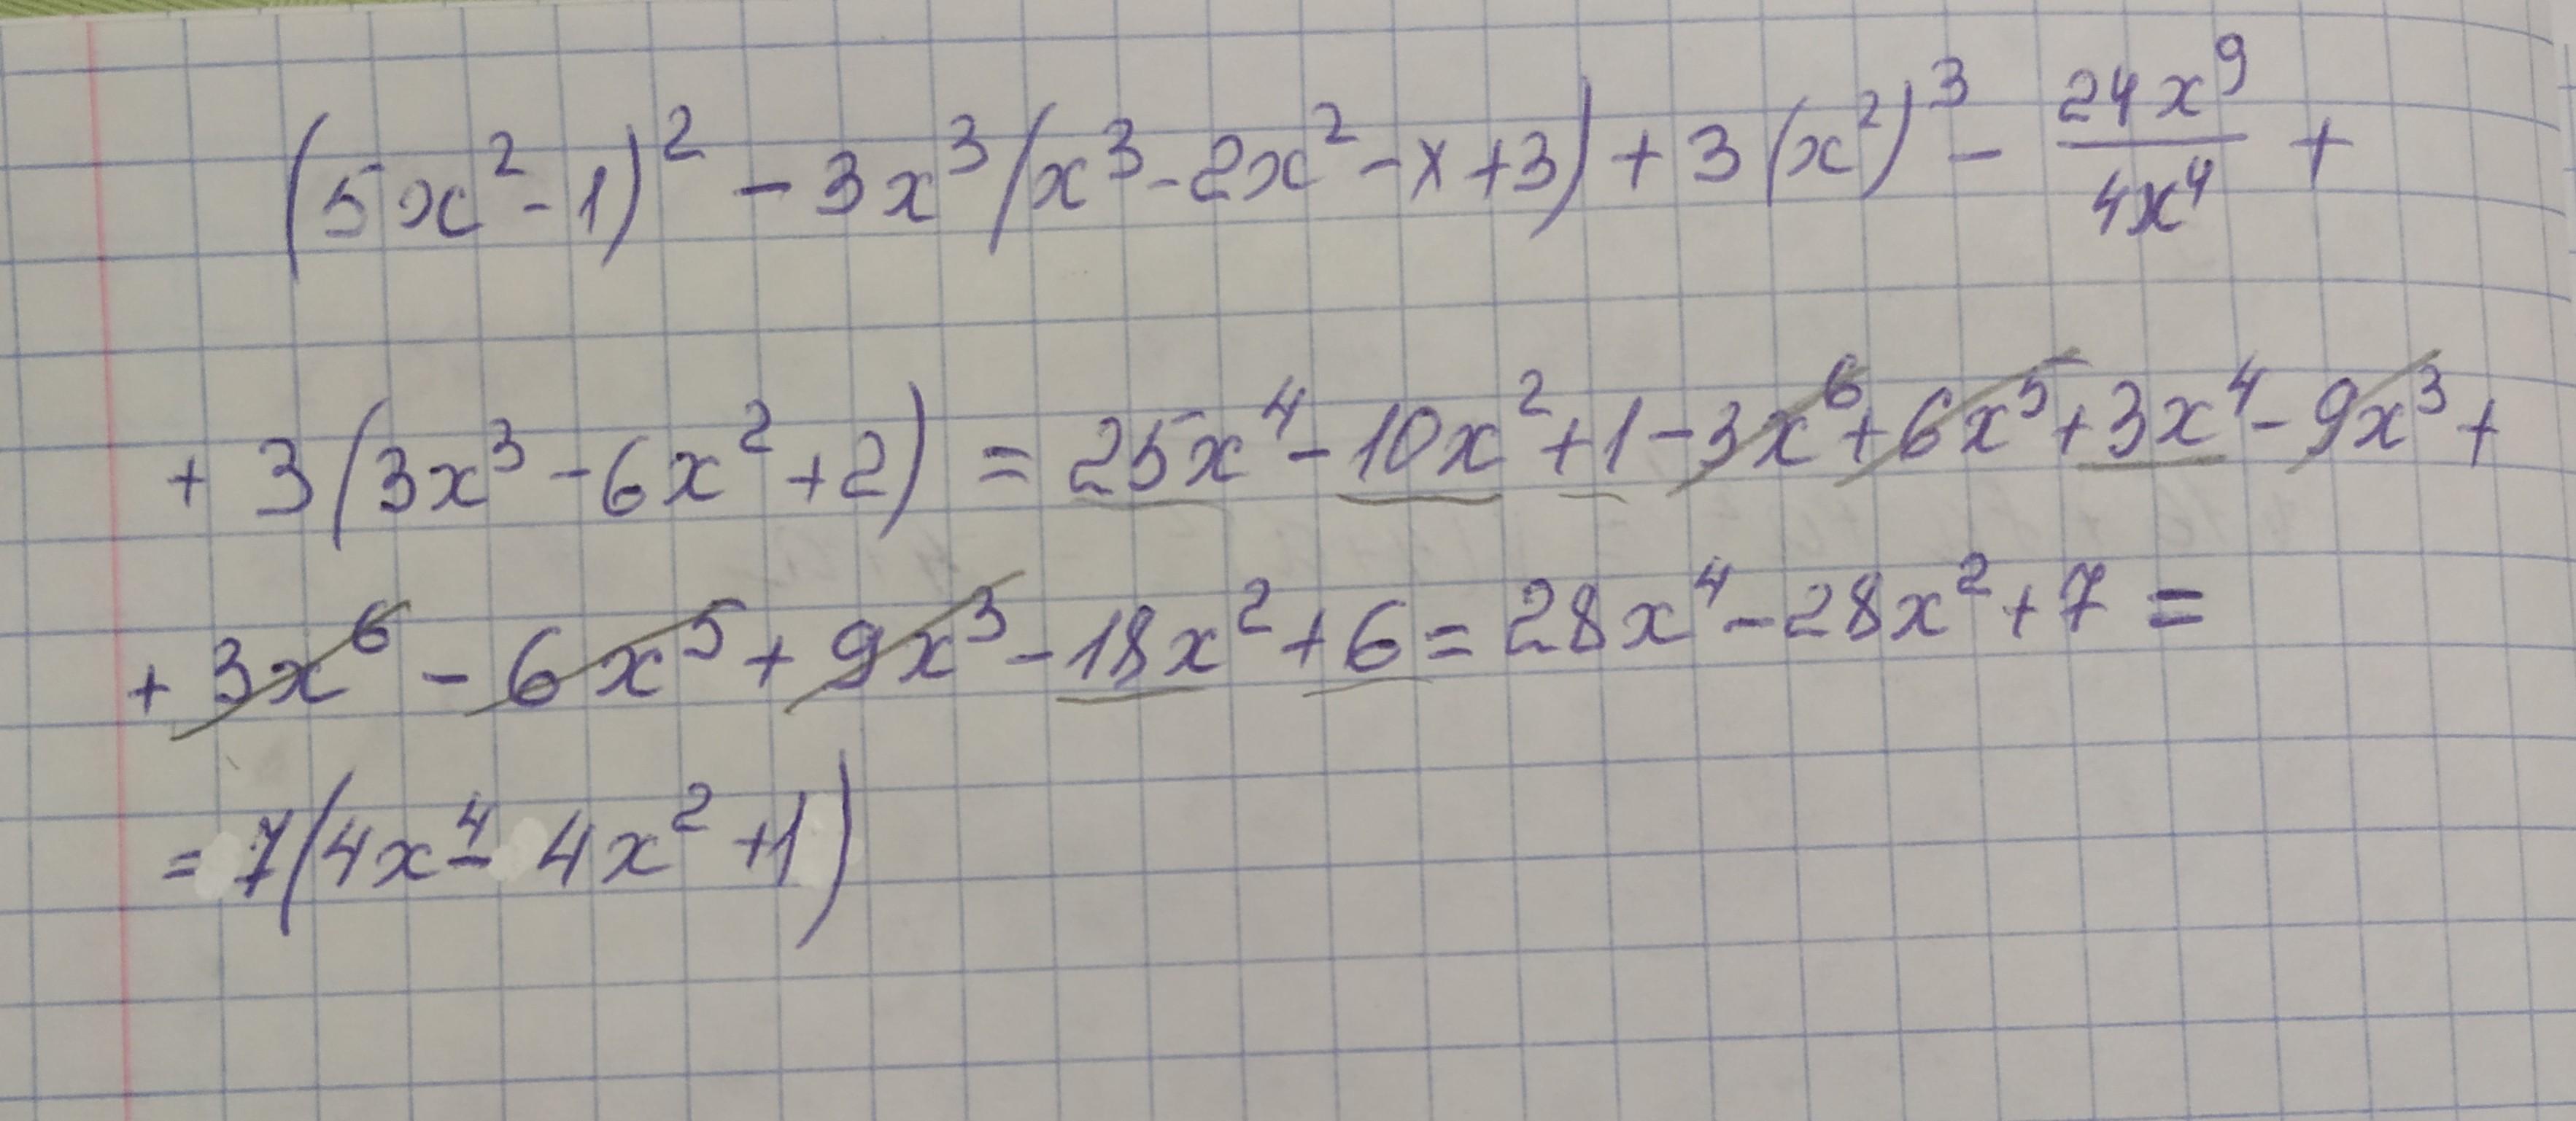 (5x²-1)² - 3x³(x³-2x²-x+3)+3(x²)³ - 24x⁹/4x⁴ +
+ 3(3x³-6x²+2) = 25x⁴-10x²+1-3x⁶+6x⁵+3x⁴-9x³+
+ 3x⁶ - 6x⁵ + 9x³ - 18x² + 6 = 28x⁴-28x²+7 =
= 7(4x⁴- 4x² +1)